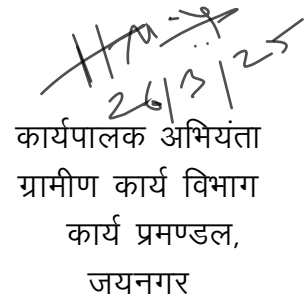 26/3/25
कार्यपालक अभियंता
ग्रामीण कार्य विभाग
कार्य प्रमण्डल,
जयनगर